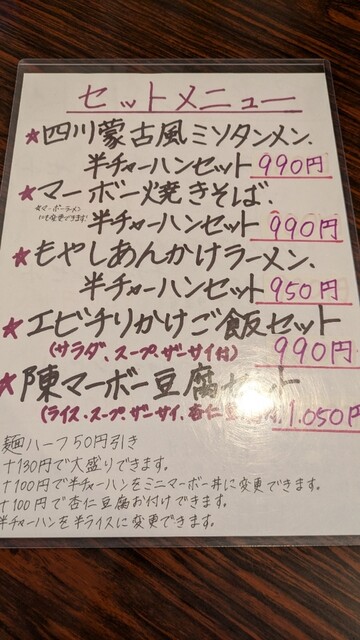 セットメニュー
★四川蒙古風ミソタンメン、
半チャーハンセット 990円
★マーボー焼きそば、
※マーボーラーメン
にも変更できます!
半チャーハンセット 990円
★もやしあんかけラーメン、
半チャーハンセット 950円
★エビチリかけご飯セット
(サラダ、スープ、ザーサイ付) 990円
★陳マーボー豆腐セット
(ライス・スープ、ザーサイ、杏仁 1.050円
麺ハーフ50円引き
+130円で大盛りできます。
+100円で半チャーハンをミニマーボー丼に変更できます。
+100円で杏仁豆腐お付けできます。
半チャーハンを半ライスに変更できます。